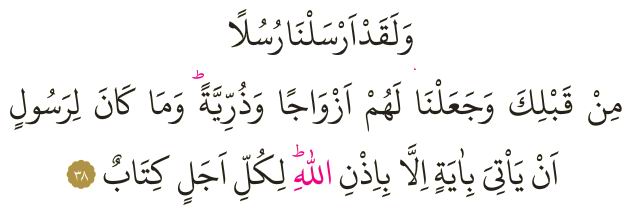 وَلَقَدْ اَرْسَلْنَا رُسُلًا
مِنْ قَبْلِكَ وَجَعَلْنَا لَهُمْ اَزْوَاجًا وَذُرِّيَّةًۜ وَمَا كَانَ لِرَسُولٍ
اَنْ يَأْتِىَ بِاٰيَةٍ اِلَّا بِاِذْنِ اللّٰهِۜ لِكُلِّ اَجَلٍ كِتَابٌ ٣٨